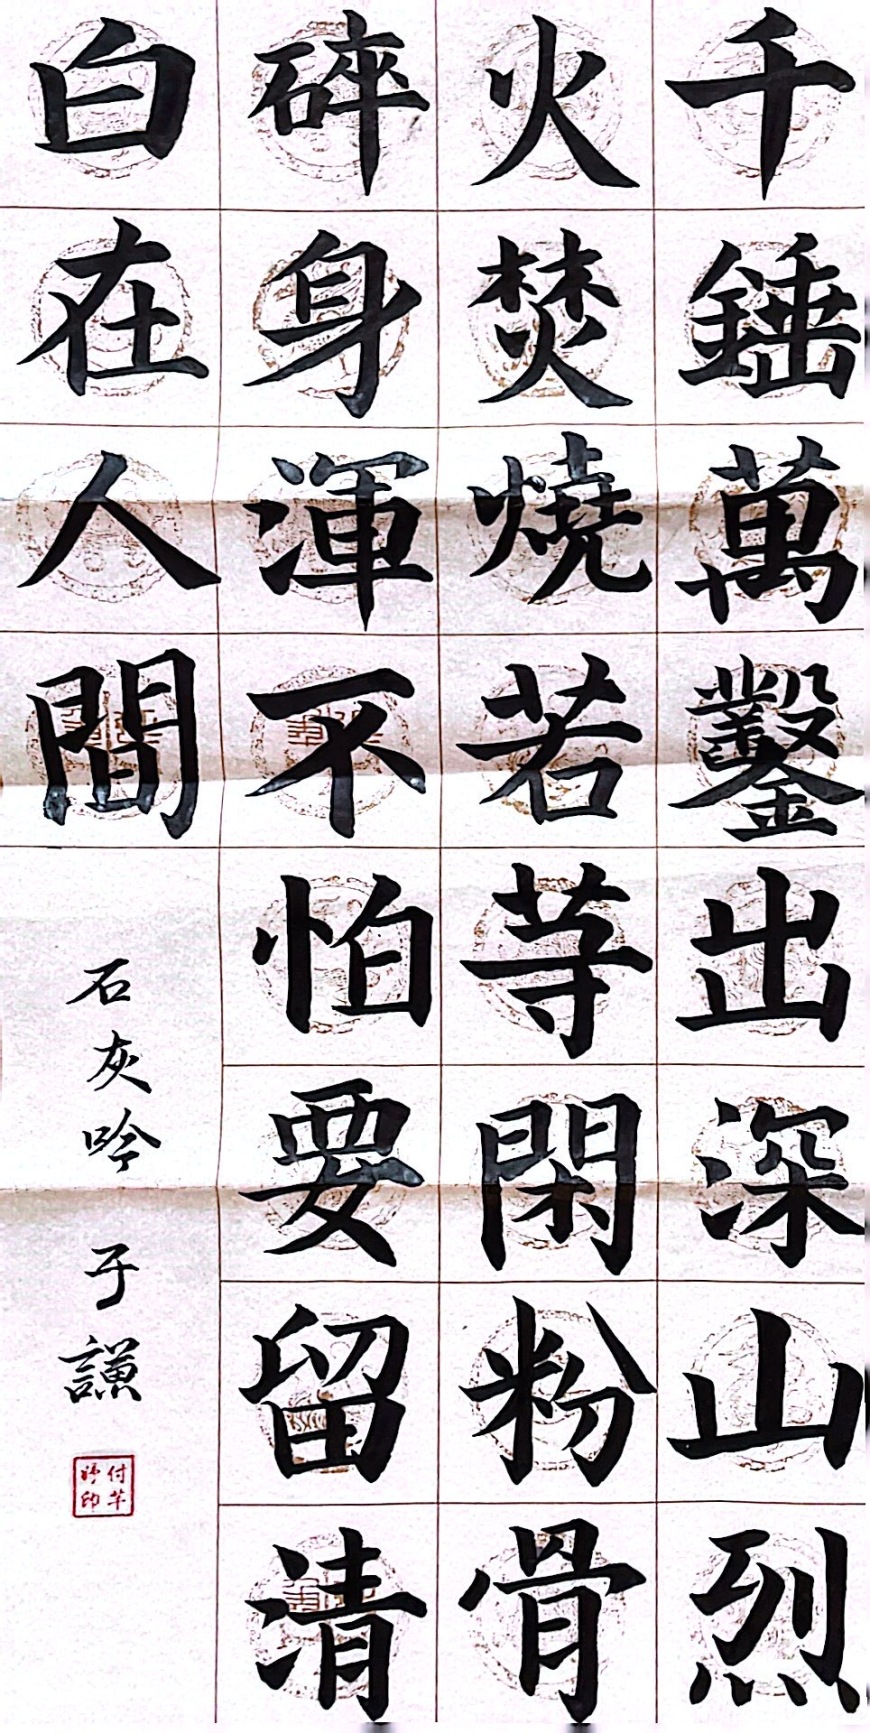 千錘萬鑿出深山烈
火焚燒若等閑粉骨
碎身渾不怕要留清
白在人間
石灰吟 于謙
付芊
妤印